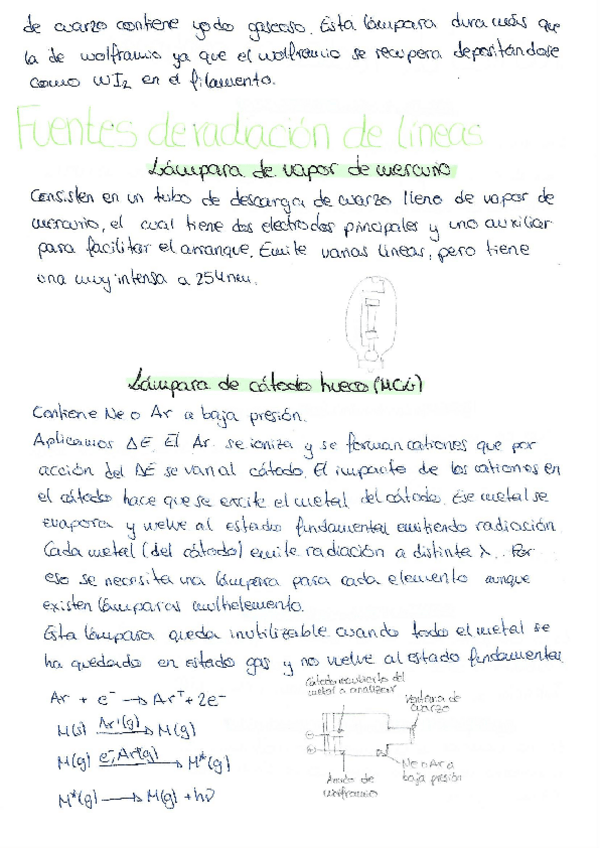 de cuarzo contiene yodo gaseoso. Esta lámpara dura más que
la de wolframio ya que el wolframio se recupera depositándose
como WI2 en el filamento.
Fuentes de radiación de líneas
Lámpara de vapor de mercurio
Consisten en un tubo de descarga de cuarzo lleno de vapor de
mercurio, el cual tiene dos electrodos principales y uno auxiliar
para facilitar el arranque. Emite varias líneas, pero tiene
una muy intensa a 254nm.
Lámpara de cátodo hueco
Contiene Ne o Ar a baja presión.
Aplicamos ΔE. El Ar se ioniza y se forman cationes que por
acción del ΔE se van al cátodo. El impacto de los cationes en
el cátodo hace que se excite el metal del cátodo. Ese metal se
evapora y vuelve al estado fundamental emitiendo radiación
Cada metal (del cátodo) emite radiación a distinta λ. Por
eso se necesita una lámpara para cada elemento aunque
existen lámparas multielemento.
Esta lámpara queda inutilizable cuando todo el metal se
ha quedado en estado gas y no vuelve al estado fundamental
Ar + e⁻ → Ar⁺ + 2e⁻
M(s) Ar⁺(g) → M(g)
M(g) e⁻, Ar⁺(g) → M*(g)
M*(g) → M(g) + hν
Cátodo recubierto del
metal a analizar
Ventana de
cuarzo
Ánodo de
wolframio
Ne o Ar a
baja presión